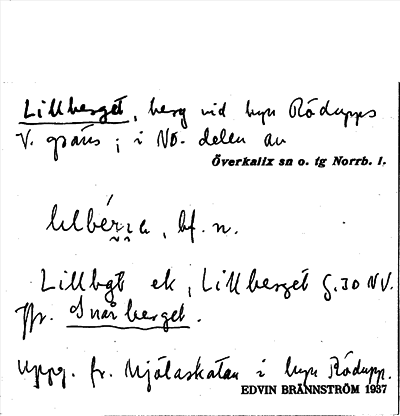 Lillberget, berg vid byn Rödupps
V. gräns; i NO. delen av
Överkalix sn o. tg Norrb. l.
bf. n.
Lillbgt ek, Lillberget 5.30 NV.
Jfr. Snårberget.
Uppg. fr. Mjölaskatan i byn Rödupp.
EDVIN BRÄNNSTRÖM 1937